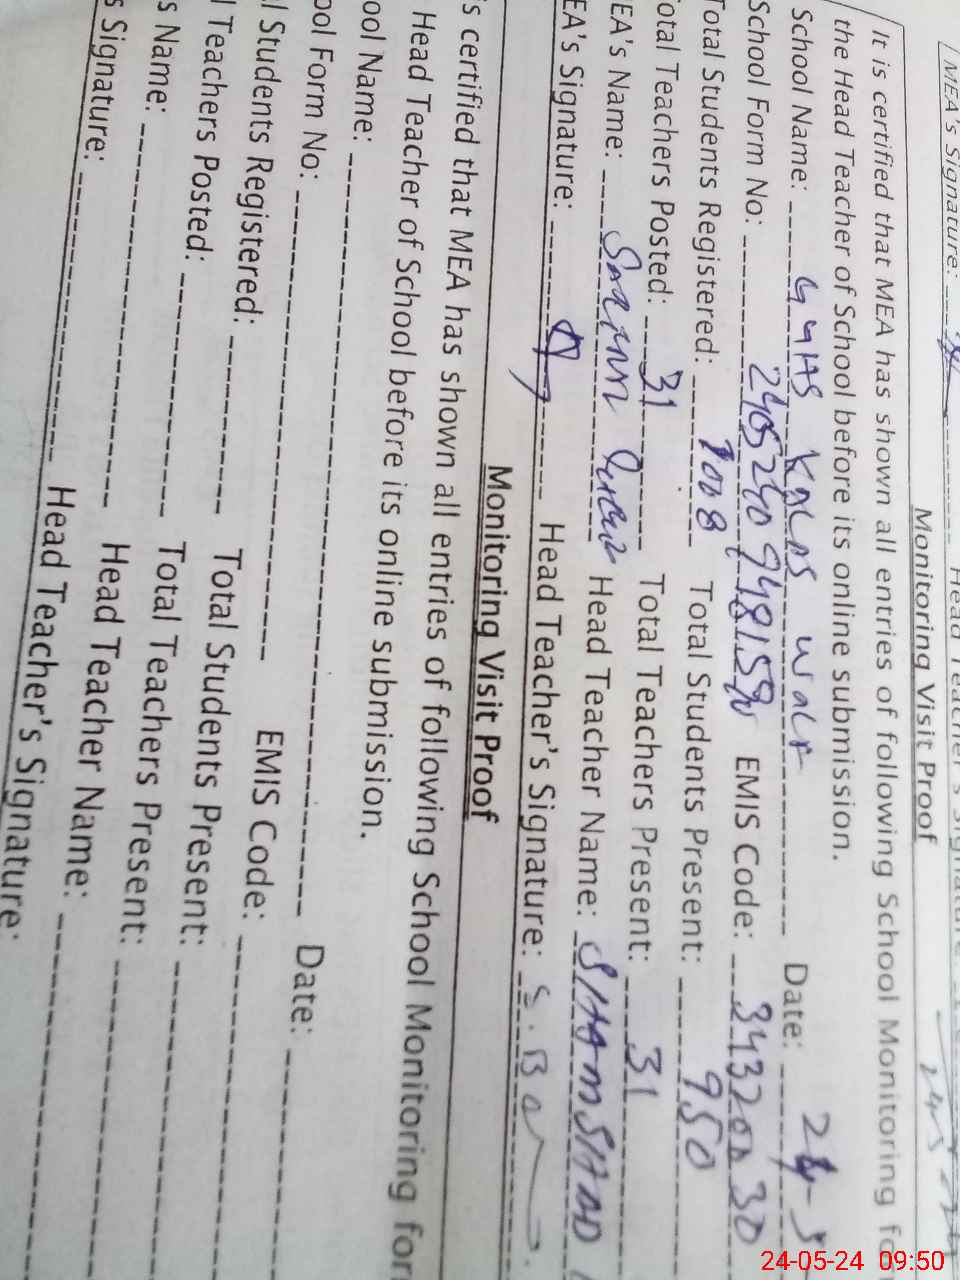 MEA's Signature: Head Teacher's Signature:
Monitoring Visit Proof
It is certified that MEA has shown all entries of following School Monitoring fo
the Head Teacher of School before its online submission.
School Name: GGHS Date: 24-5
School Form No: EMIS Code:
Total Students Registered: 1008 Total Students Present: 950
Total Teachers Posted: 31 Total Teachers Present: 31
EA's Name: Head Teacher Name: SHAMSHAD
EA's Signature: Head Teacher's Signature:
Monitoring Visit Proof
s certified that MEA has shown all entries of following School Monitoring for
Head Teacher of School before its online submission.
ool Name: Date:
ool Form No: EMIS Code:
l Students Registered: Total Students Present:
l Teachers Posted: Total Teachers Present:
s Name: Head Teacher Name:
s Signature: Head Teacher's Signature:
24-05-24 09:50